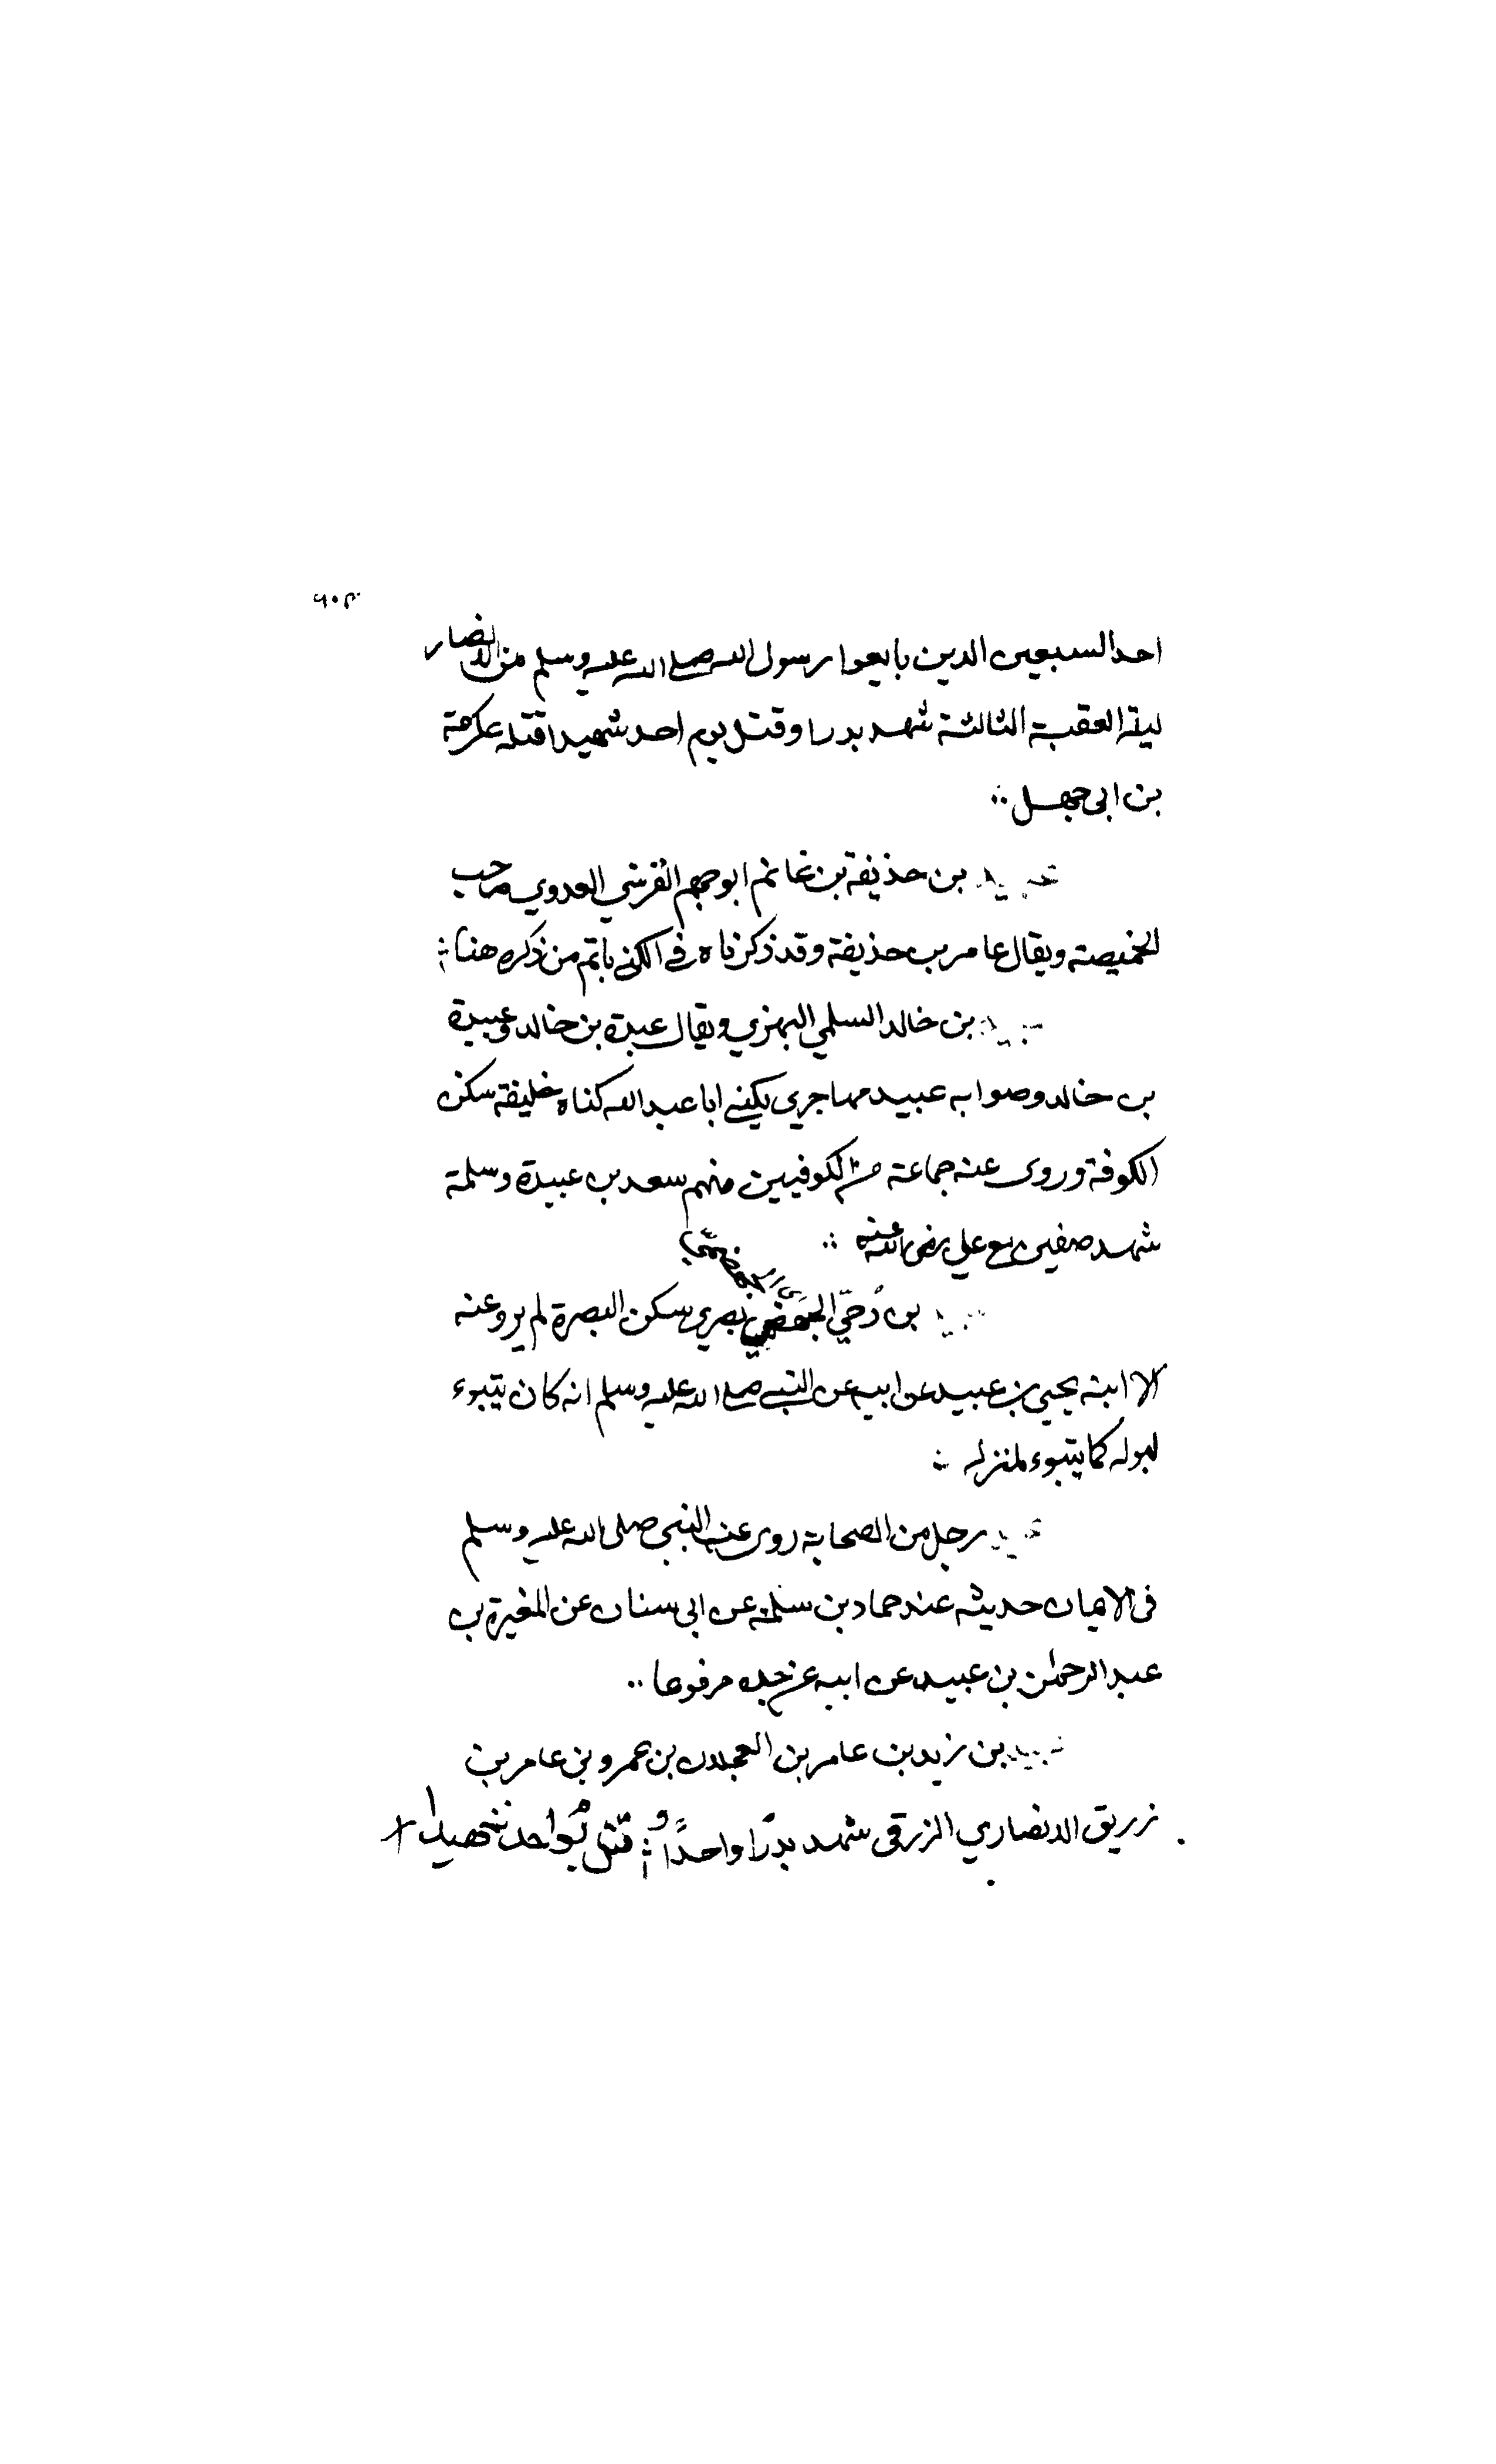 احد السبعين الدين بايعوا رسول الله صلى الله عليه وسلم من الانصار
ليلة العقبة الثالثة شهد بدرا وقتل يوم احد شهيدا قتله عكرمة
بن ابى جهل
عبيد بن حذيفة بن غانم ابو جهم القرشي العدوي صاحب
الخميصة ويقال عامر بن حذيفة وقد ذكرناه في الكنى باتم من ذكره هنا
عبيد بن خالد السلمي البهزي ويقال عبدة بن خالد وعبيدة
بن خالد وصوابه عبيد مهاجري يكنى ابا عبد الله كناه خليفة سكن
الكوفة وروى عنه جماعة من الكوفيين منهم سعد بن عبيدة وسلمة
شهد صفين مع علي رضي الله عنه
عبيد بن دُحَيّ الجهضمي بصري سكن البصرة لم يرو عنه
الا ابنه يحيى بن عبيد عن ابيه عن النبي صلى الله عليه وسلم انه كان يتبوء
لبوله كما يتبوء لمنزله
عبيد رجل من الصحابة روى عن النبي صلى الله عليه وسلم
فى الايمان حديثه عند حماد بن سلمة عن ابى سنان عن المغيرة بن
عبد الرحمن بن عبيد عن ابيه عن جده مرفوعا
عبيد بن زيد بن عامر بن العجلان بن عمرو بن عامر بن
زريق الانصاري الزرقى شهد بدرًا واحدًا و قتل يوم احد شهيدا